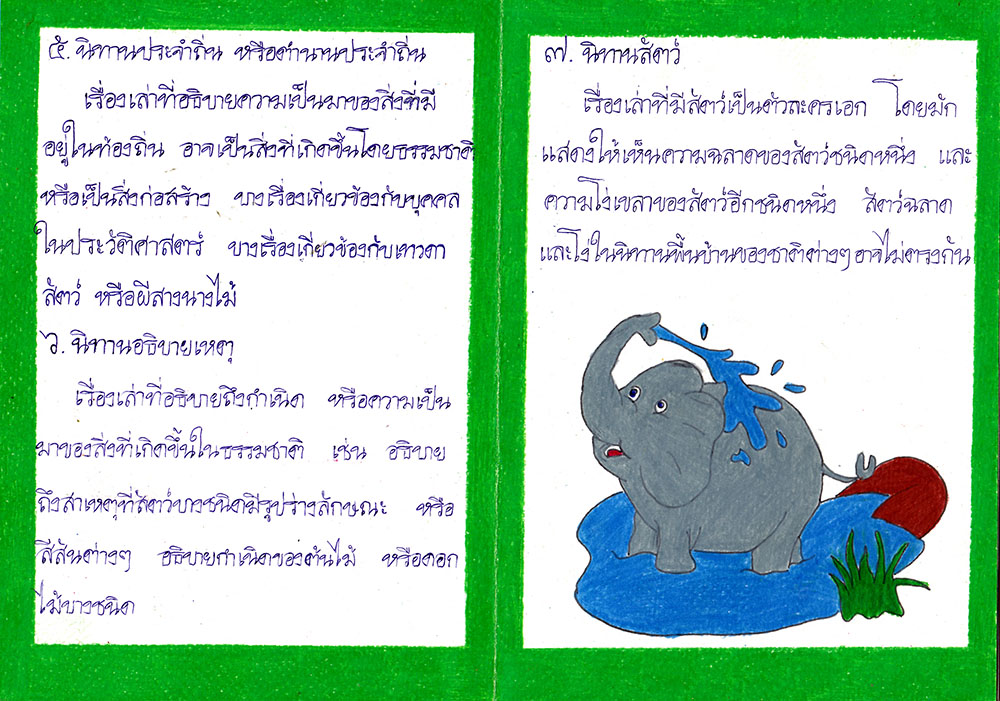 ๕. นิทานประจำถิ่น หรือตำนานประจำถิ่น
เรื่องเล่าที่อธิบายความเป็นมาของสิ่งที่มี
อยู่ในท้องถิ่น อาจเป็นสิ่งที่เกิดขึ้นโดยธรรมชาติ
หรือเป็นสิ่งก่อสร้าง บางเรื่องเกี่ยวข้องกับบุคคล
ในประวัติศาสตร์ บางเรื่องเกี่ยวข้องกับเทวดา
สัตว์ หรือผีสางนางไม้
๖. นิทานอธิบายเหตุ
เรื่องเล่าที่อธิบายถึงกำเนิด หรือความเป็น
มาของสิ่งที่เกิดขึ้นในธรรมชาติ เช่น อธิบาย
ถึงสาเหตุที่สัตว์บางชนิดมีรูปร่างลักษณะ หรือ
สีสันต่างๆ อธิบายกำเนิดของต้นไม้ หรือดอก
ไม้บางชนิด
๗. นิทานสัตว์
เรื่องเล่าที่มีสัตว์เป็นตัวละครเอก โดยมัก
แสดงให้เห็นความฉลาดของสัตว์ชนิดหนึ่ง และ
ความโง่เขลาของสัตว์อีกชนิดหนึ่ง สัตว์ฉลาด
และโง่ในนิทานพื้นบ้านของชาติต่างๆ อาจไม่ตรงกัน